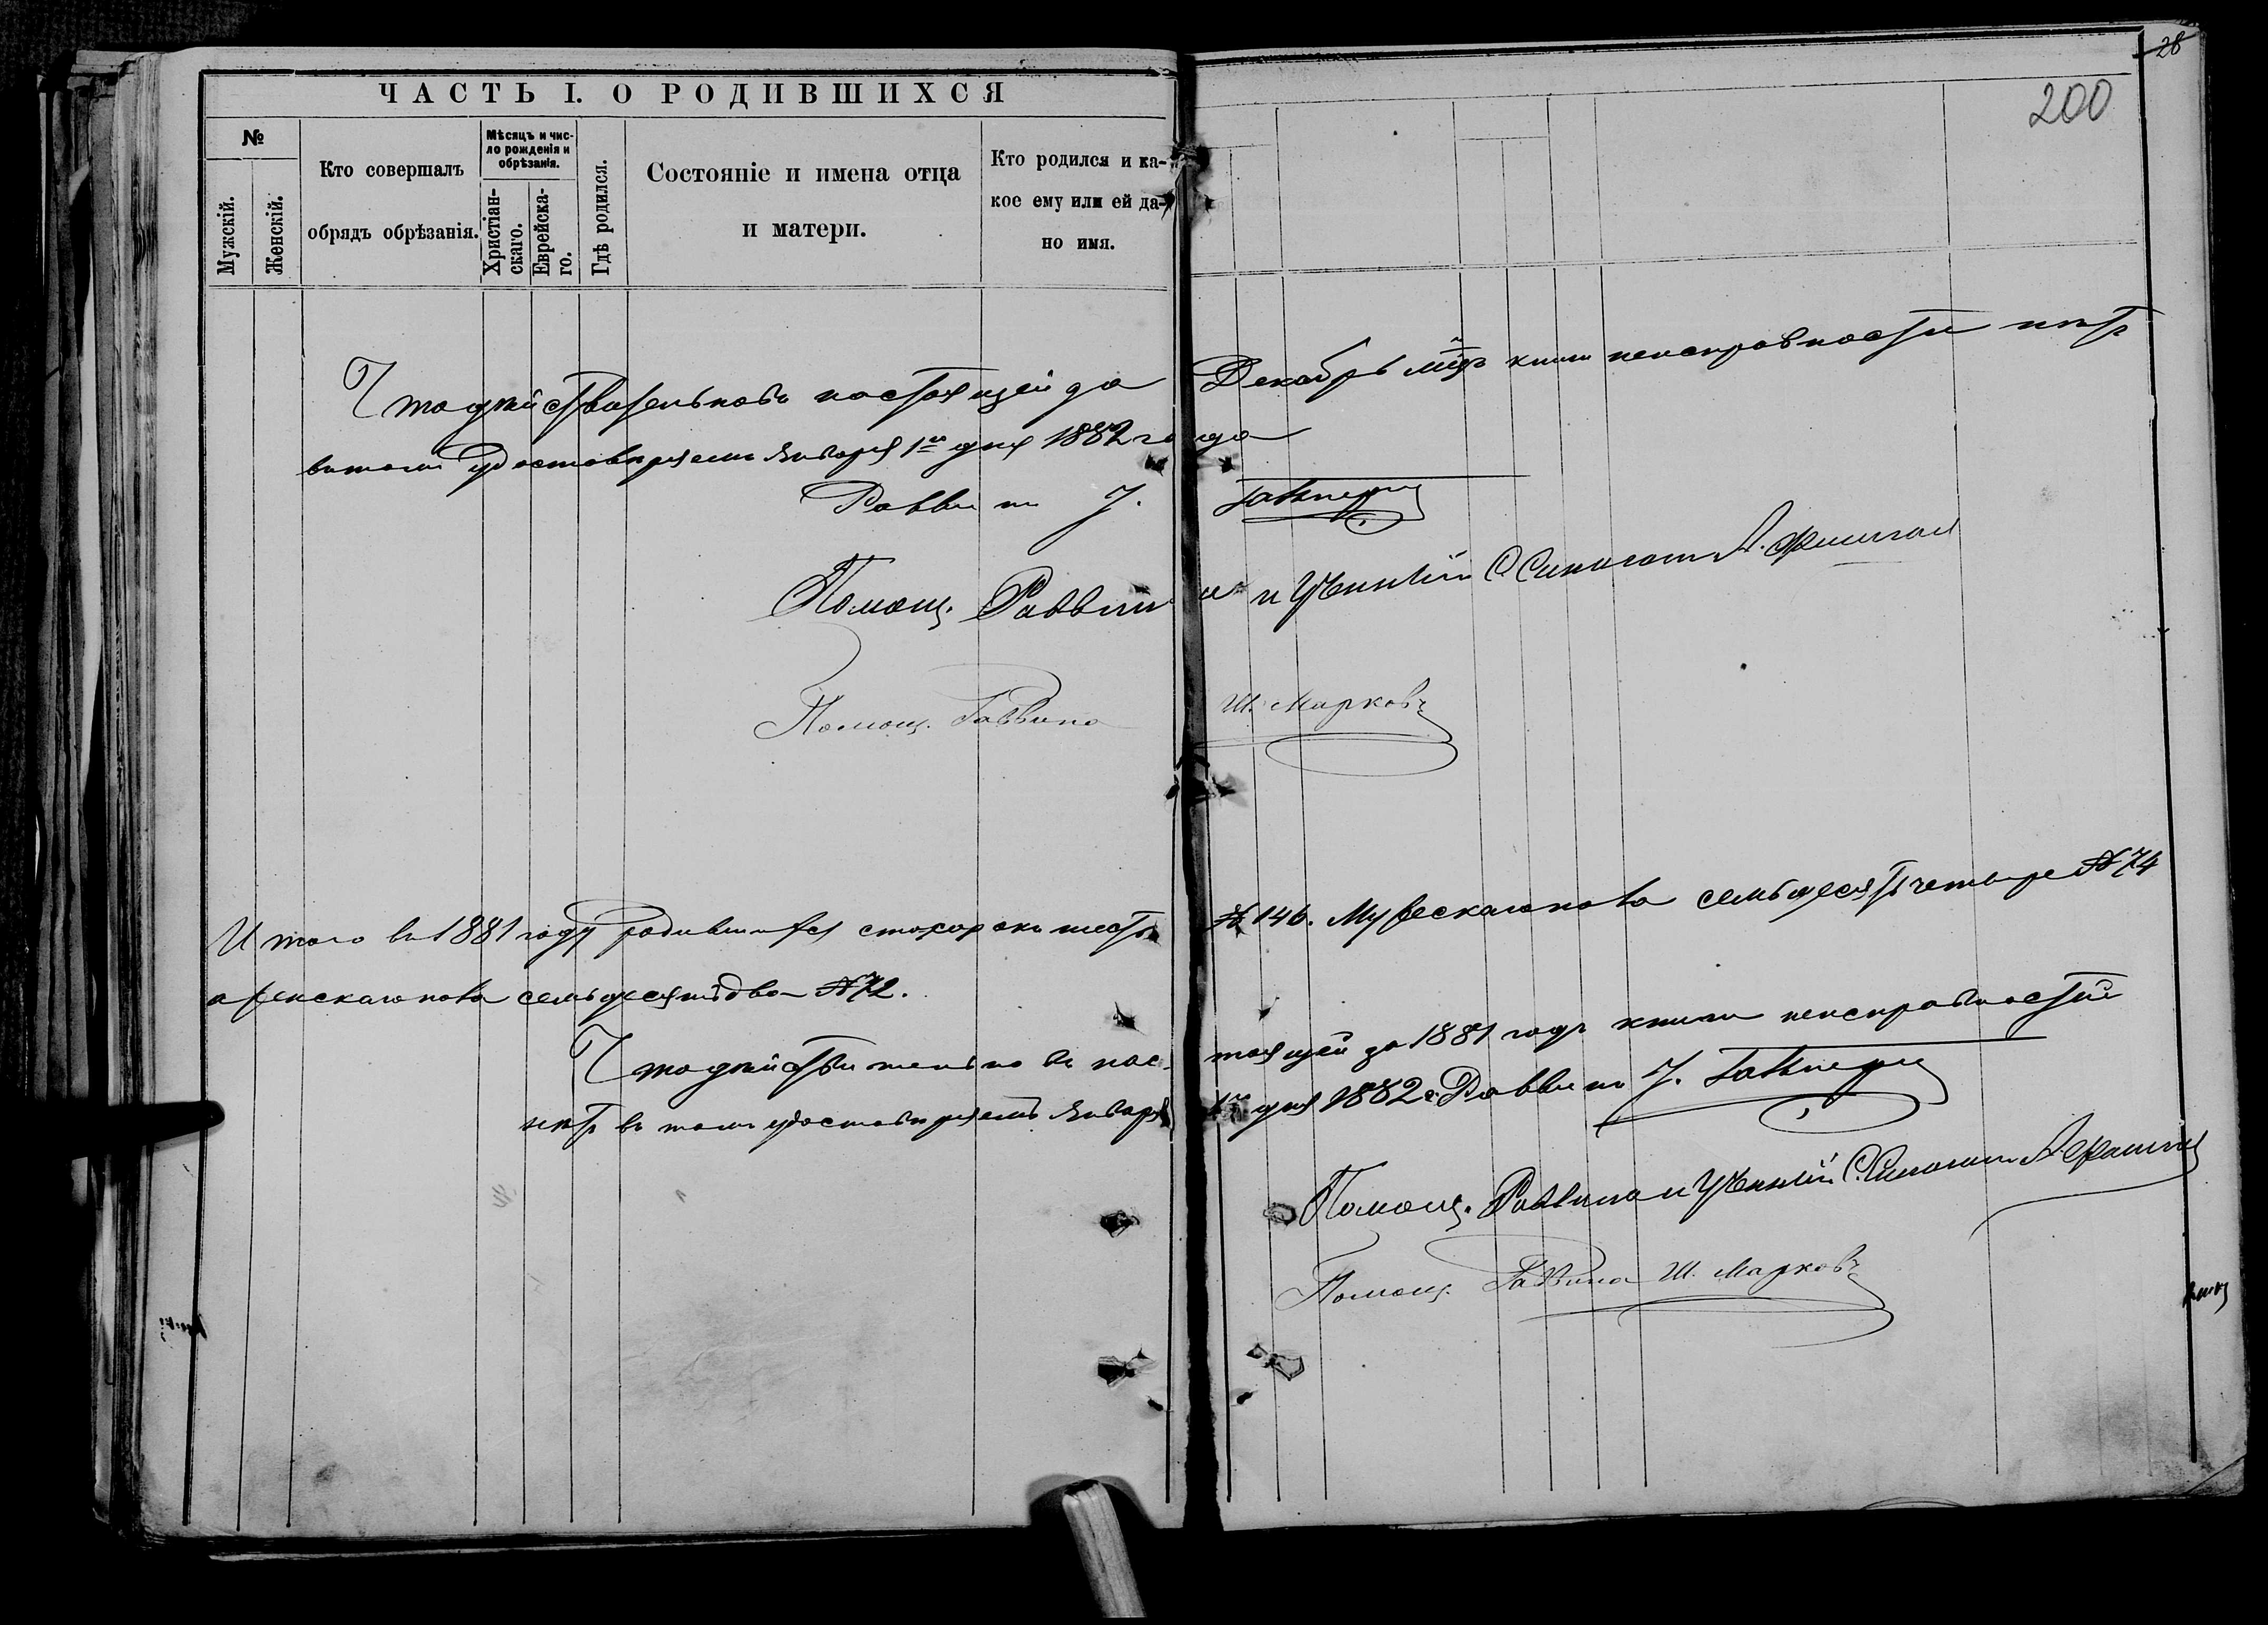 28
200
ЧАСТЬ I. О РОДИВШИХСЯ
№
Мужскій.
Женскій.
Кто совершалъ
обрядъ обрѣзанія.
Мѣсяцъ и чис-
ло рожденія и
обрѣзанія.
Христіан-
скаго.
Еврейска-
го.
Гдѣ родился.
Состояніе и имена отца
и матери.
Кто родился и ка-
кое ему или ей да-
но имя.
Что дѣйствительно въ настоящей за Декабрь м-цъ книги неисправности нѣтъ
въ томъ удостовѣряемъ Января 1го дня 1882 года
Раввинъ
Помощ. Раввина и Ученный
Помощ. Раввина Ш. Марковъ
Итого въ 1881 году родившихся сто сорокъ шесть № 146. Мужескаго пола семьдесятъ четыре № 74
а женскаго пола семьдесятъ два № 72.
Что дѣйствительно въ настоящей за 1881 годъ книги неисправностей
нѣтъ въ томъ удостовѣряемъ Января 1го дня 1882 г. Раввинъ
Помощ. Раввина и Ученный
Помощ. Раввина Ш. Марковъ